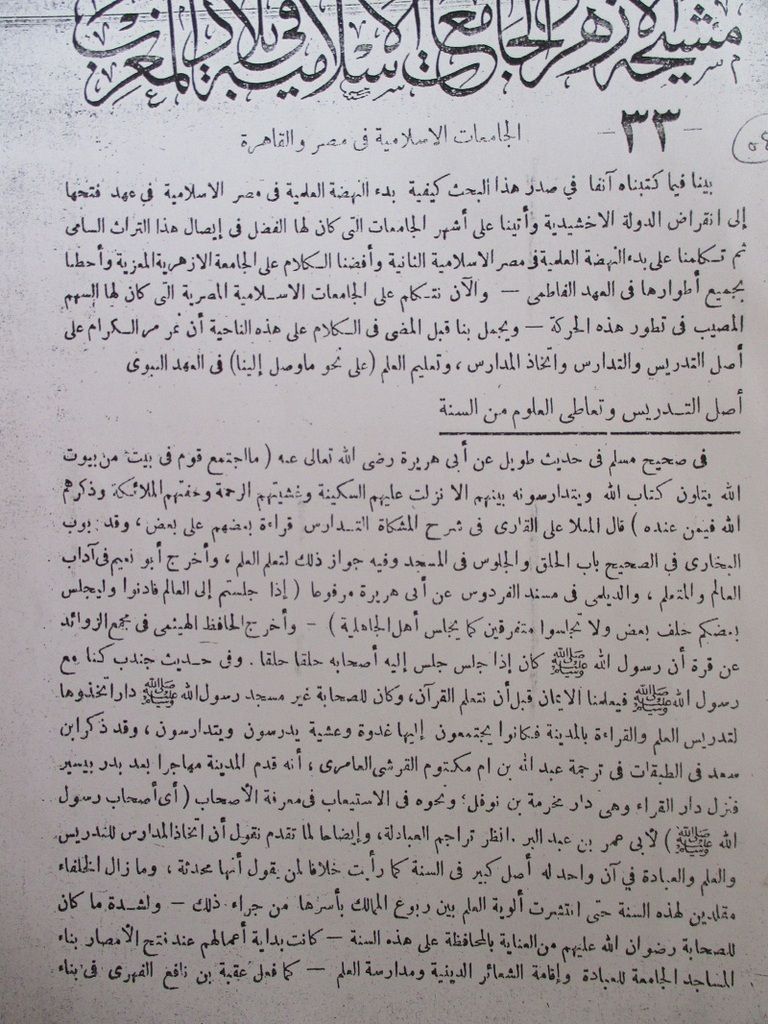 مشيخة الازهر والجامعات الاسلامية في بلاد المغرب
— ٣٣ —
الجامعات الاسلامية فى مصر والقاهرة
بينا فيما كتبناه آنفا فى صدر هذا البحث كيفية بدء النهضة العلمية فى مصر الاسلامية فى عهد فتحها
إلى انقراض الدولة الاخشيدية وأتينا على أشهر الجامعات التى كان لها الفضل فى إيصال هذا التراث السامى
ثم تكلمنا على بدء النهضة العلمية فى مصر الاسلامية الثانية وأفضنا الكلام على الجامعة الازهرية المعزية وأحطنا
بجميع أطوارها فى العهد الفاطمى — والآن نتكلم على الجامعات الاسلامية المصرية التى كان لها السهم
المصيب فى تطور هذه الحركة — ويجمل بنا قبل المضى فى الكلام على هذه الناحية أن نمر مر الكرام على
أصل التدريس والتدارس واتخاذ المدارس ، وتعليم العلم (على نحو ماوصل إلينا) فى العهد النبوى
أصل التدريس وتعاطى العلوم من السنة
فى صحيح مسلم فى حديث طويل عن أبى هريرة رضى الله تعالى عنه ( مااجتمع قوم فى بيت من بيوت
الله يتلون كتاب الله ويتدارسونه بينهم الا نزلت عليهم السكينة وغشيتهم الرحمة وحفتهم الملائكة وذكرهم
الله فيمن عنده ) قال الملا على القارى فى شرح المشكاة التدارس قراءة بعضهم على بعض ، وقد بوب
البخارى فى الصحيح باب الحلق والجلوس فى المسجد وفيه جواز ذلك لتعلم العلم ، وأخرج أبو نعيم فى آداب
العالم والمتعلم ، والديلمى فى مسند الفردوس عن أبى هريرة مرفوعا ( إذا جلستم إلى العالم فادنوا وليجلس
بعضكم خلف بعض ولا تجلسوا متفرقين كما يجلس أهل الجاهلية ) — وأخرج الحافظ الهيثمى فى مجمع الزوائد
عن قرة أن رسول الله ﷺ كان إذا جلس جلس إليه أصحابه حلقا حلقا . وفى حديث جندب كنا مع
رسول الله ﷺ فيعلمنا الايمان قبل أن نتعلم القرآن، وكان للصحابة غير مسجد رسول الله ﷺ دار اتخذوها
لتدريس العلم والقراءة بالمدينة فكانوا يجتمعون إليها غدوة وعشية يدرسون ويتدارسون ، وقد ذكر ابن
سعد فى الطبقات فى ترجمة عبد الله بن ام مكتوم القرشى العامرى ، أنه قدم المدينة مهاجرا بعد بدر بيسير
فنزل دار القراء وهى دار مخرمة بن نوفل؛ ونحوه فى الاستيعاب فى معرفة الأصحاب ( أى أصحاب رسول
الله ﷺ ) لأبى عمر بن عبد البر . انظر تراجم العبادلة، وإيضاحا لما تقدم نقول أن اتخاذ المدارس للتدريس
والعلم والعبادة في آن واحد له أصل كبير فى السنة كما رأيت خلافا لمن يقول أنها محدثة ، وما زال الخلفاء
مقلدين لهذه السنة حتى انتشرت ألوية العلم بين ربوع الممالك بأسرها من جراء ذلك — ولشدة ما كان
للصحابة رضوان الله عليهم من العناية بالمحافظة على هذه السنة — كانت بداية أعمالهم عند فتح الأمصار بناء
المساجد الجامعة للعبادة وإقامة الشعائر الدينية ومدارسة العلم — كما فعل عقبة بن نافع الفهرى فى بناء